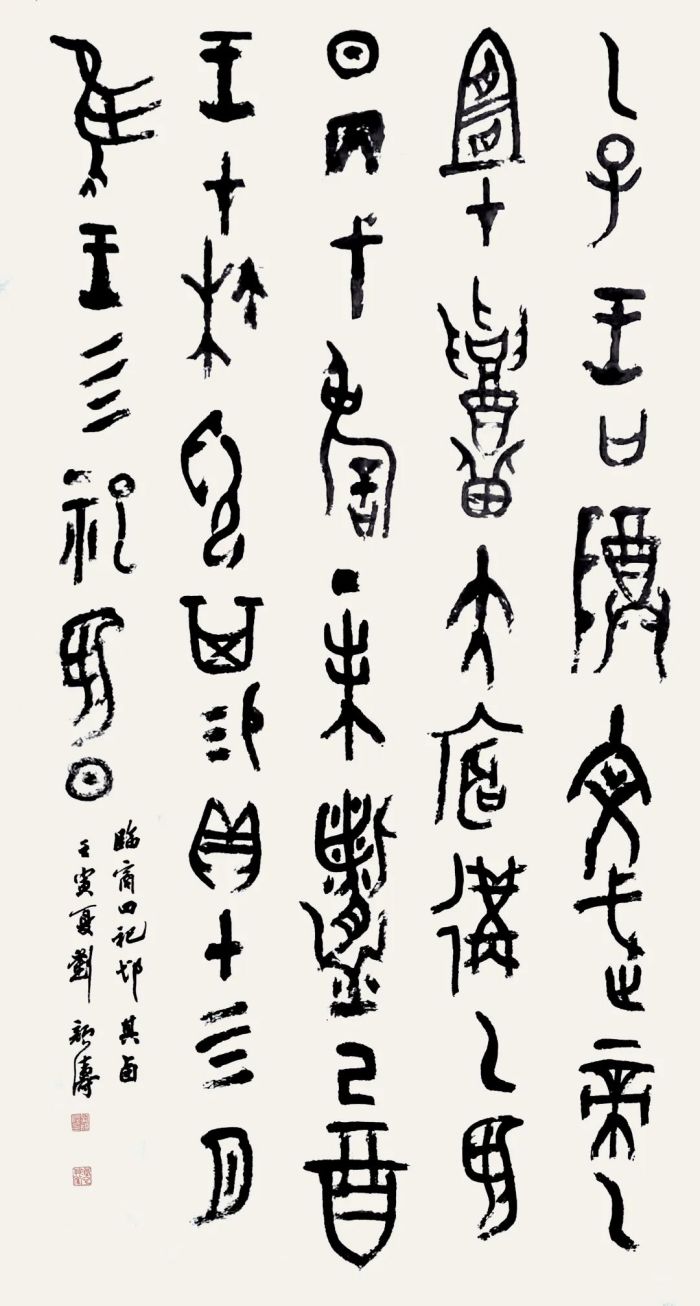 乙巳王曰尊文武帝乙
宜才召大庭遘乙翌
日丙午丁未煮己酉
王才梌邲其易貝才四月
隹王四祀翌日
臨商四祀邲其卣
壬寅夏劉新濤